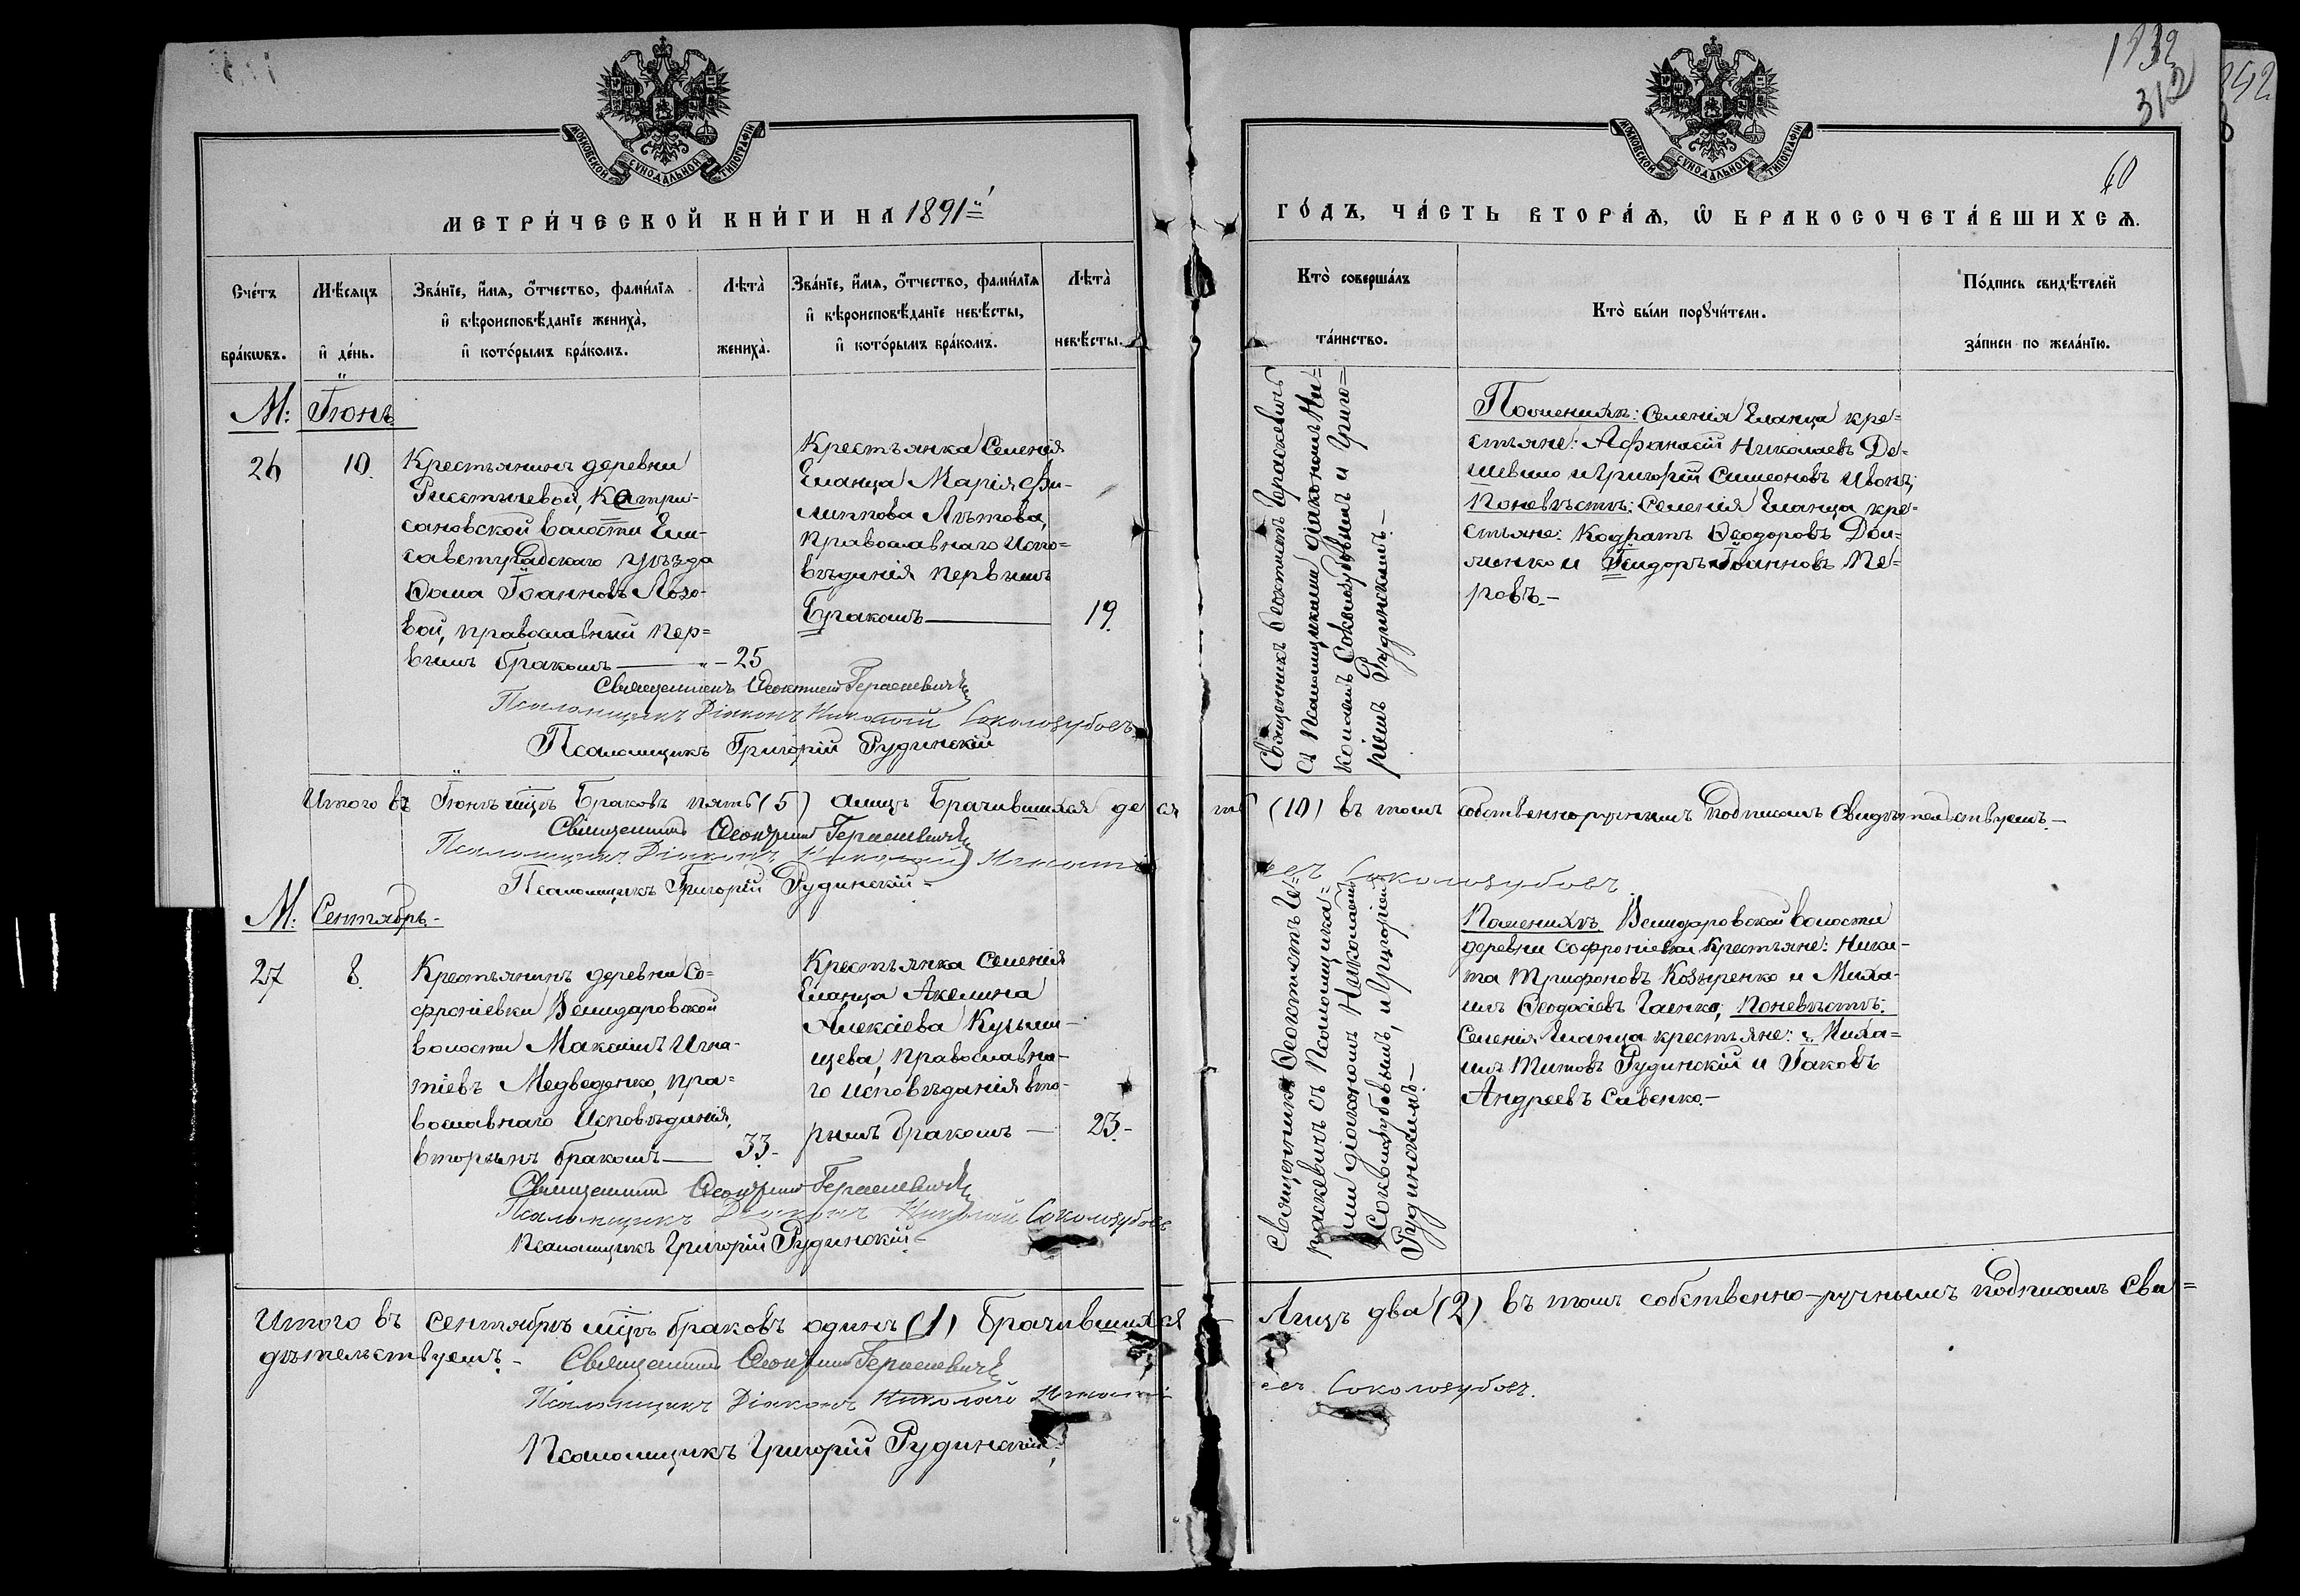 1132
312
60
МОСКОВСКОЙ СѴНОДАЛЬНОЙ ТИПОГРАФІИ
МОСКОВСКОЙ СѴНОДАЛЬНОЙ ТИПОГРАФІИ
МЕТРИ́ЧЕСКОЙ КНИ́ГИ НА 1891й
ГО́ДЪ, ЧА́СТЬ ВТОРА́Ѧ, Ѽ БРАКОСОЧЕТА́ВШИХСѦ.
Сче́тъ бра́кѡвъ.
Мѣ́сяцъ и҆ де́нь.
Зва́нїе, и҆́мѧ, ѻ҆́тчество, фами́лїѧ
и҆ вѣроисповѣ́данїе жениха̀,
и҆ кото́рымъ бра́комъ.
Лѣта̀ жениха̀.
Зва́нїе, и҆́мѧ, ѻ҆́тчество, фами́лїѧ
и҆ вѣроисповѣ́данїе невѣ́сты,
и҆ кото́рымъ бра́комъ.
Лѣта̀ невѣ́сты.
Кто̀ соверша́лъ
та́инство.
Кто̀ бы́ли порꙋчи́тели.
По́дпись свидѣ́телей
за́писи по жела́нїю.
М: Іюнь
26
10.
Крестьянинъ деревни
сановской волости Ели-
саветградскаго уѣзда
Ѳома Іоанновъ Лозо-
вой, православный пер=
вымъ бракомъ — 25
Крестьянка Селенія
Еланца Марія Фи-
липпова Лѣтова,
православнаго испо=
вѣданія первымъ
Бракомъ —
19.
Священникъ Ѳеоктистъ Гераскевичъ
съ псаломщиками діакономъ Ни=
колаемъ Соколозубовымъ и Григо=
ріемъ Рудинскимъ.—
По женихѣ: Селенія Еланца кре=
стьяне: Афанасій Николаевъ Де-
шевило и Григорій Симеоновъ Ивонъ;
по невѣстѣ: Селенія Еланца кре=
стьяне: Кодратъ Ѳеодоровъ Дои-
ненко и Исидоръ Іоанновъ Пе-
ровъ.—
Священникъ Ѳеоктистъ Гераскевичъ
Псаломщикъ Діаконъ Николай Соколозубовъ
Псаломщикъ Григорій Рудинскій
Итого въ Іюнѣ мцѣ Браковъ пять (5) а лицъ Брачившихся десять (10) въ томъ собственноручнымъ подписомъ свидѣтельствуемъ.—
Священникъ Ѳеоктистъ Гераскевичъ
Псаломщикъ Діаконъ Николай Игнатьевъ Соколозубовъ
Псаломщикъ Григорій Рудинскій.
М: Сентябрь.—
27
8.
Крестьянинъ деревни Со=
фроніевки Велидаровской
волости Максимъ Игна-
тіевъ Медведенко, пра=
вославнаго исповѣданія,
вторымъ бракомъ — 33.-
Крестьянка Селенія
Еланца Акелина
Алексіева Кузьми-
щева, православна-
го исповѣданія вто-
рымъ бракомъ —
23.-
Священникъ Ѳеоктистъ Ге=
раскевичъ съ псаломщика=
ми діакономъ Николаемъ
Соколозубовымъ, и Григоріемъ
Рудинскимъ.—
По женихѣ Велидаровской волости
деревни Софроніевки крестьяне: Ники-
та Трифоновъ Козыренко и Миха-
илъ Ѳеодосіевъ Гаенко; по невѣстѣ:
Селенія Еланца крестьяне: Миха=
илъ Титовъ Рудинскій и Іаковъ
Андреевъ Савенко.—
Священникъ Ѳеоктистъ Гераскевичъ
Псаломщикъ Діаконъ Николай Соколозубовъ
Псаломщикъ Григорій Рудинскій.
Итого въ Сентябрѣ мцѣ браковъ одинъ (1) Брачившихся Лицъ два (2) въ томъ собственно-ручнымъ подписомъ сви=
дѣтельствуемъ.— Священникъ Ѳеоктистъ Гераскевичъ
Псаломщикъ Діаконъ Николай Игнатьевъ Соколозубовъ.
Псаломщикъ Григорій Рудинскій.